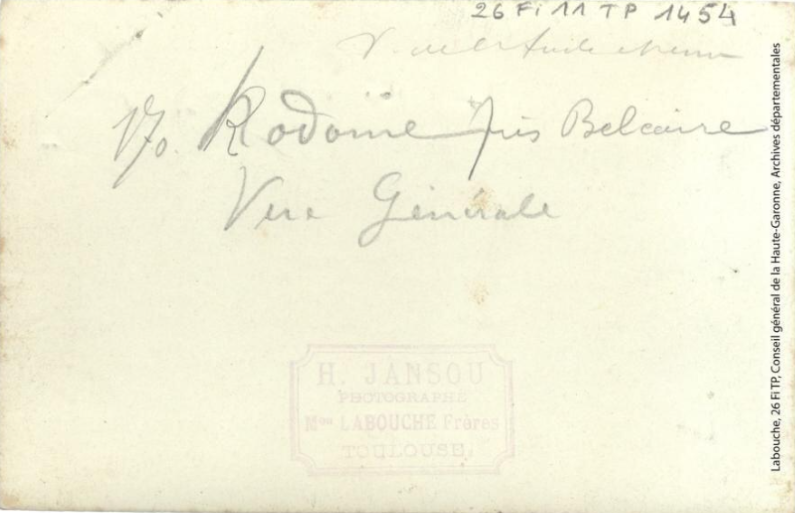 26 Fi 11 TP 1454
170. Rodome près Belcaire
Vue Générale
H. JANSOU
PHOTOGRAPHE
Mon LABOUCHE Frères
TOULOUSE
Labouche, 26 Fi TP, Conseil général de la Haute-Garonne, Archives départementales